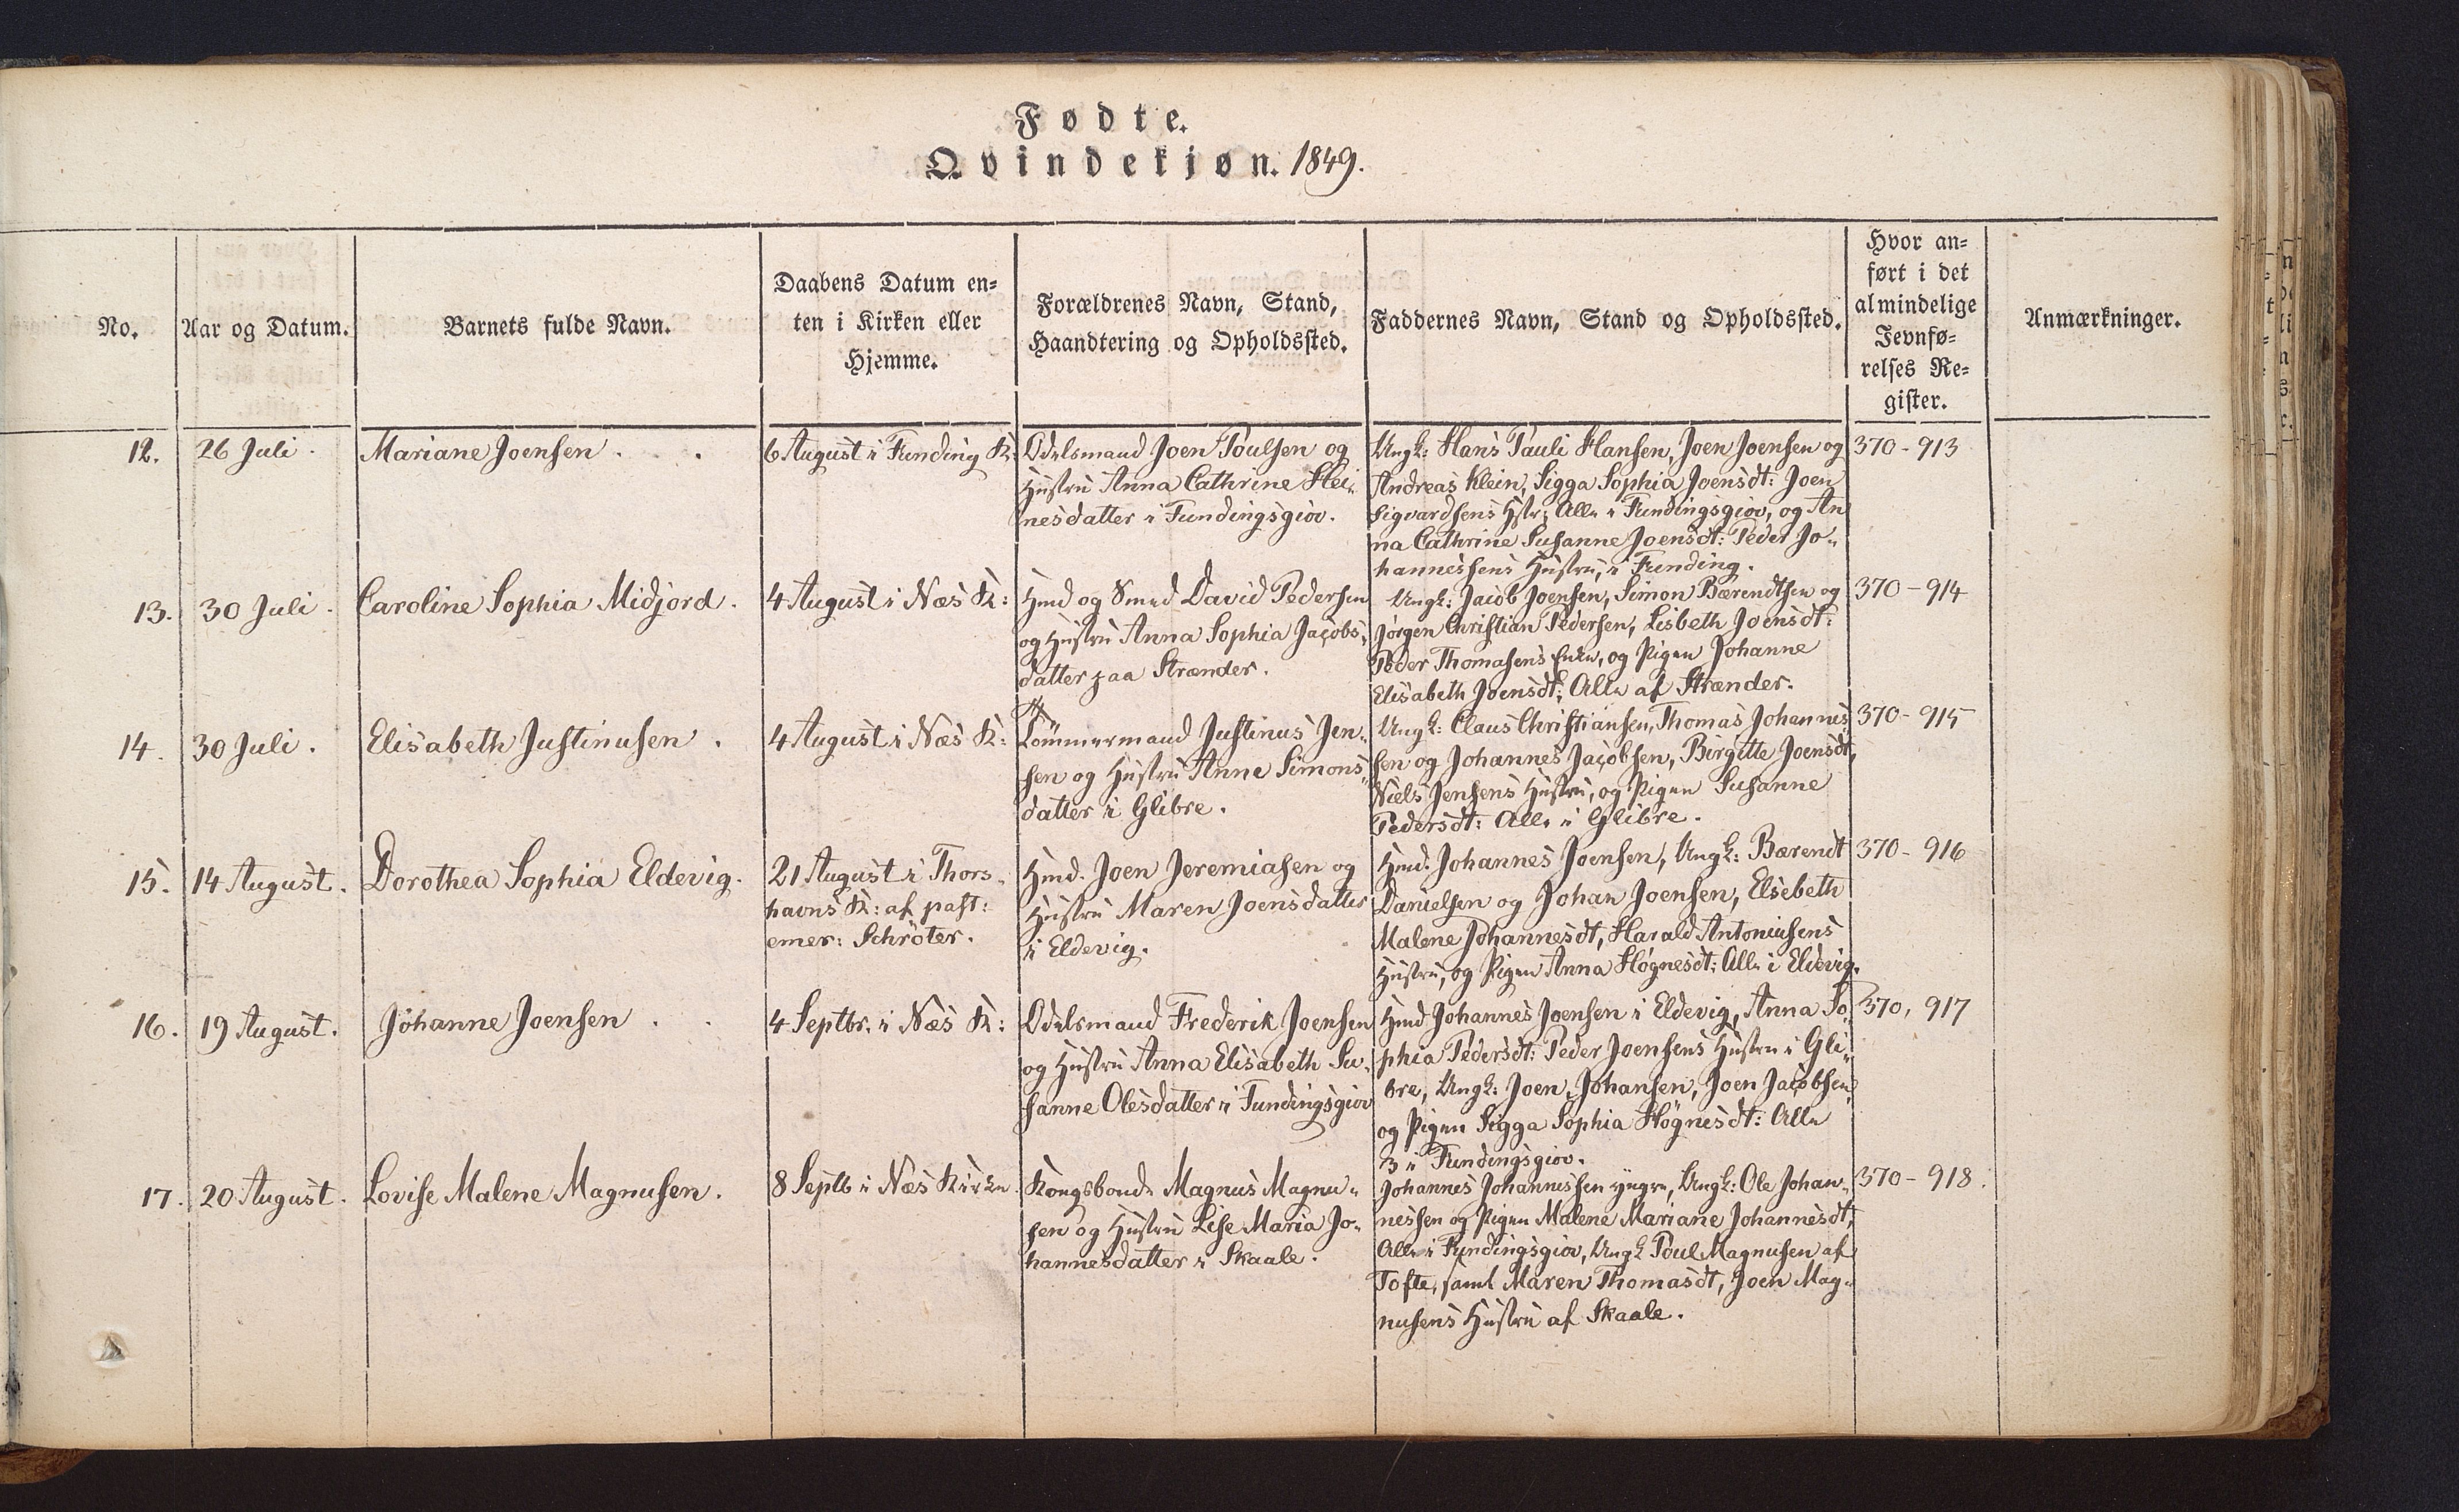 Fødte.
Qvindekjøn. 1849.
No.
Aar og Datum.
Barnets fulde Navn.
Daabens Datum en-
ten i Kirken eller
Hjemme.
Forældrenes Navn, Stand,
Haandtering og Opholdssted.
Faddernes Navn, Stand og Opholdssted.
Hvor an-
ført i det
almindelige
Jevnfø-
relses Re-
gister.
Anmærkninger.
12.
26 Juli.
Mariane Joensen . .
6 August i Funding K:
Odelsmand Joen Poulsen og
Hustru Anna Cathrine Hei-
nesdatter i Fundingsgiov.
Ungk: Hans Pauli Hansen, Joen Joensen og
Andreas Klein, Sigga Sophia Joensdt: Joen
Sigvardsens Hstr; Alle i Fundingsgiov, og An
na Cathrine Susanne Joensdt: Peder Jo-
hannessens Hustru, i Funding.
370 - 913
13.
30 Juli.
Caroline Sophia Midjord.
4 August i Næs K:
Hmd og Smed David Pedersen
og Hustru Anna Sophia Jacobs-
datter paa Strænder.
Ungk: Jacob Joensen, Simon Bærendtsen og
Jørgen Christian Pedersen, Lisbeth Joensdt:
Peder Thomasens Enke, og Pigen Johanne
Elisabeth Joensdt; Alle af Strænder.
370 - 914
14.
30 Juli.
Elisabeth Justinusen .
4 August i Næs K:
Tömmermand Justinus Jen-
sen og Hustru Anne Simons-
datter i Glibre.
Ungk: Claus Christiansen, Thomas Johannes-
sen og Johannes Jacobsen, Birgitte Joensdt,
Niels Jensens Hustru, og Pigen Susanne
Pedersdt: Alle i Glibre.
370 - 915
15.
14 August.
Dorothea Sophia Eldevig.
21 August i Thors-
havns K: af past:
emer: Schrøter.
Hmd. Joen Jeremiasen og
Hustru Maren Joensdatter
i Eldevig.
Hmd. Johannes Joensen, Ungk: Bærendt
Danielsen og Johan Joensen, Elsebeth
Malene Johannesdt, Harald Antoniusens
Hustru, og Pigen Anna Høgnesdt: Alle i Eldevig.
370 - 916
16.
19 August.
Johanne Joensen . .
4 Septbr. i Næs K:
Odelsmand Frederik Joensen
og Hustru Anna Elisabeth Su-
sanne Olesdatter i Fundingsgiov
Hmd Johannes Joensen i Eldevig, Anna So-
phia Pedersdt: Peder Joensens Hustru i Gli-
bre, Ungk: Joen Johansen, Joen Jacobsen,
og Pigen Sigga Sophia Högnesdt: Alle
3 i Fundingsgiov.
370, 917
17.
20 August.
Lovise Malene Magnusen.
8 Septb i Næs Kirke
Kongsbonde Magnus Magnu-
sen og Hustru Lise Maria Jo-
hannesdatter i Skaale.
Johannes Johannessen yngre, Ungk: Ole Johan-
nessen og Pigen Malene Mariane Johannesdt,
Alle i Fundingsgiov, Ungk Poul Magnusen af
Tofte, samt Maren Thomasdt, Joen Mag-
nusens Hustru af Skaale.
370 - 918.